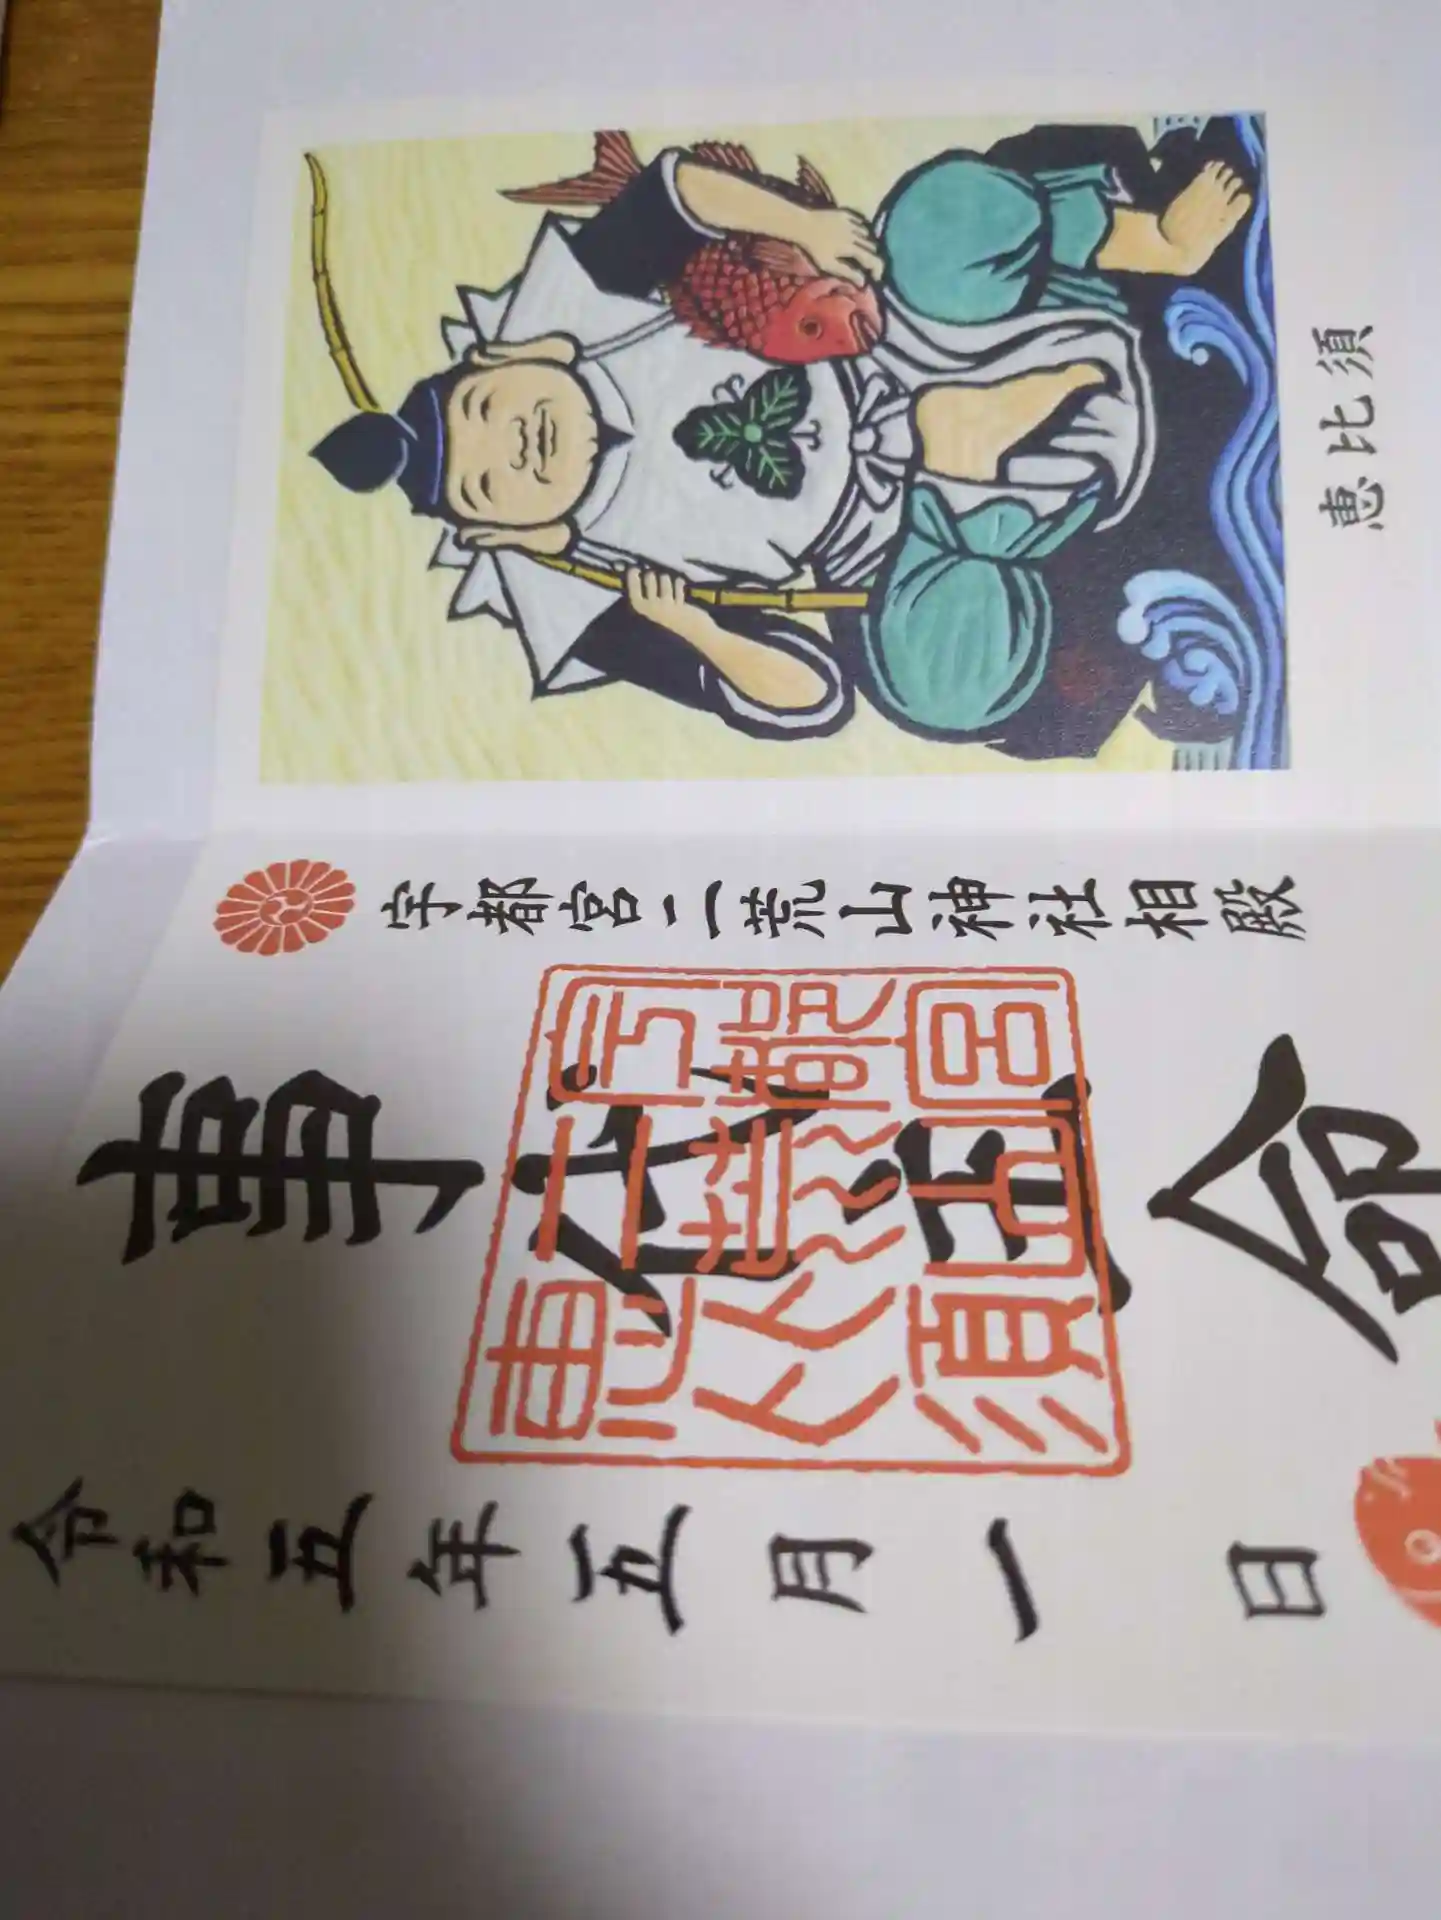 恵比須
宇都宮二荒山神社相殿
事代主命
宇都宮
二荒山
恵比須
令和五年五月一日